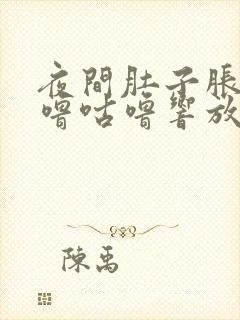 夜間肚子脹
嚕咕嚕響放
陳禹